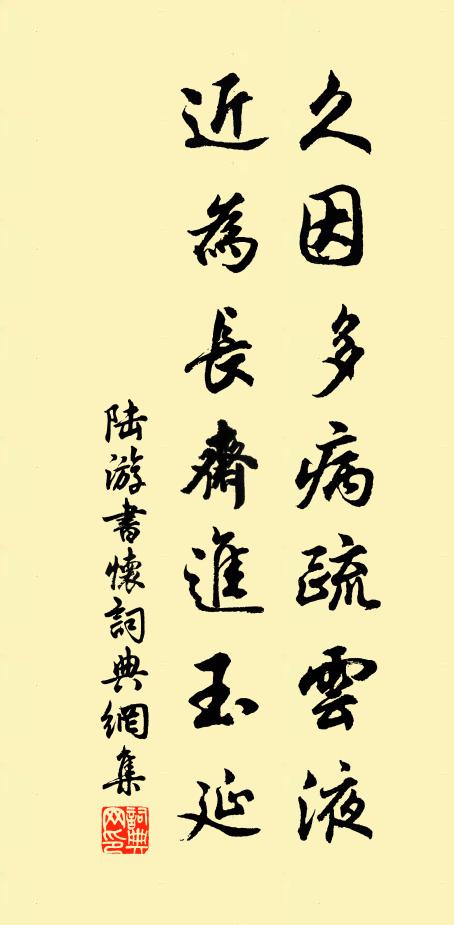 久因多病疏雲液
近為長齋進玉延
陸游書懷詞典網集
詞典網印